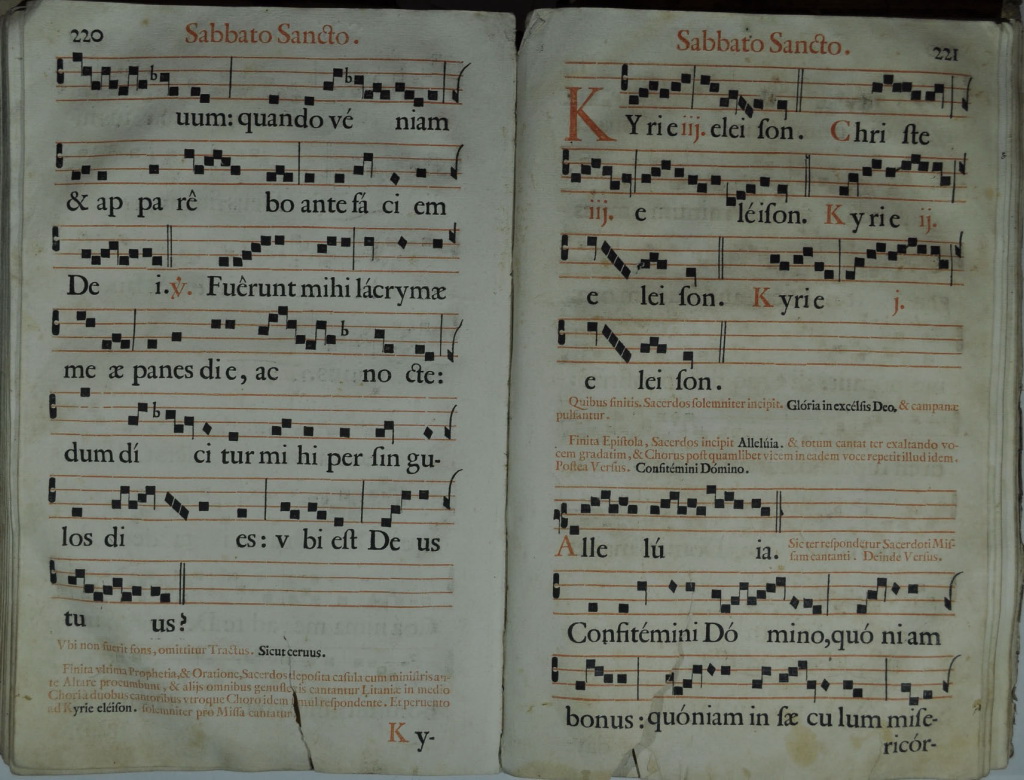 220
Sabbato Sancto.
uum: quando vé niam
& ap pa rê bo ante fá ci em
De i. ℣. Fuêrunt mihi lácrymæ
me æ panes di e, ac no cte:
dum dí ci tur mi hi per sin gu-
los di es: v bi est De us
tu us?
Vbi non fuerit fons, omittitur Tractus. Sicut ceruus.
Finita vltima Prophetia, & Oratione, Sacerdos deposita casula cum ministris an-
te Altare procumbunt, & alijs omnibus genuflexis cantantur Litaniæ in medio
Chori a duobus cantoribus vtroque Choro idem simul respondente. Et peruento
ad Kyrie eléison. solemniter pro Missa cantatur
Ky-
221
Sabbato Sancto.
KYrie iij. elei son. Chri ste
iij. e léison. Kyrie ij.
e lei son. Kyrie j.
e lei son.
Quibus finitis. Sacerdos solemniter incipit. Glória in excélsis Deo, & campanæ
pulsantur.
Finita Epistola, Sacerdos incipit Allelúia. & totum cantat ter exaltando vo-
cem gradatim, & Chorus post quamlibet vicem in eadem voce repetit illud idem.
Postea Versus. Confitémini Dómino.
Alle lú ia. Sic ter respondetur Sacerdoti Mis-
sam cantanti. Deinde Versus.
Confitémini Dó mino, quó ni am
bonus: quóniam in sæ cu lum mise-
ricór-